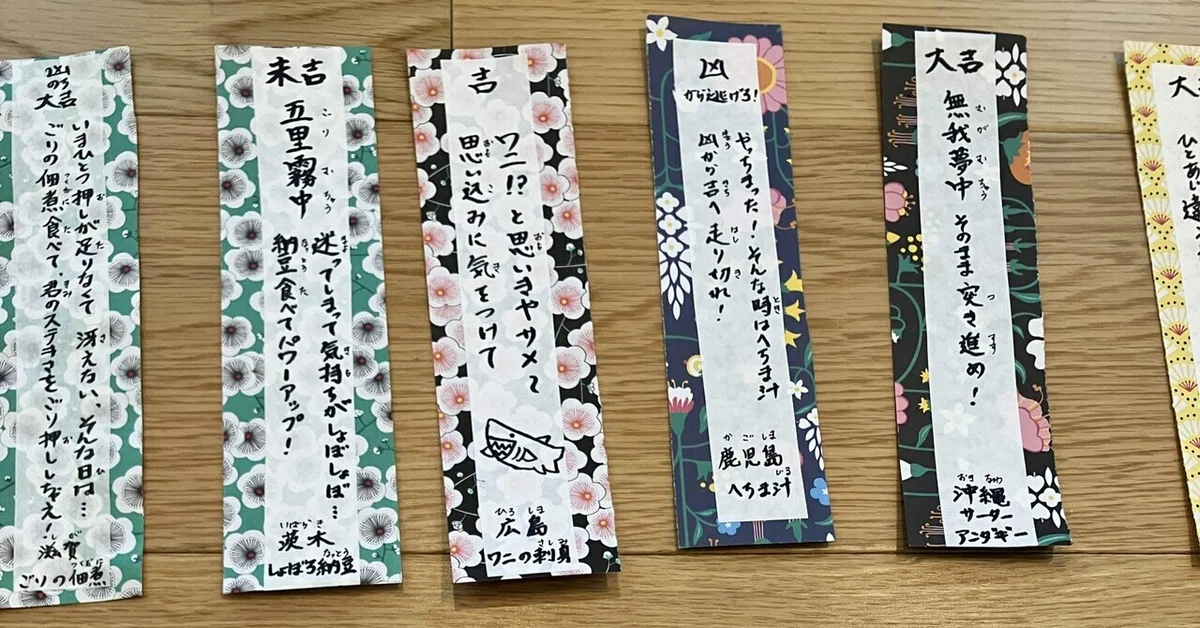 凶のち
大吉
いまひとつ押しが足りなくて 冴えない、そんな日は…
ごりの佃煮食べて、君のステキさをごり押ししなぇ!
滋賀
ごりの佃煮
末吉
五里霧中
迷ってしまって気持ちがしょぼしょぼ…
納豆食べてパワーアップ!
茨木
しょぼろ納豆
吉
ワニ!?と思いきやサメ〜
思い込みに気をつけて
広島
ワニの刺身
凶
から逃げろ!
やっちまった!そんな時はへちま汁
凶から吉へ走り切れ!
鹿児島
へちま汁
大吉
無我夢中 そのまま突き進め!
沖縄
サーター
アンダギー
大